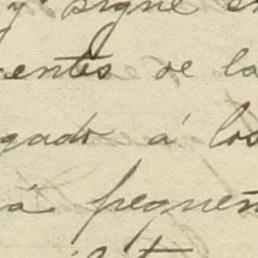 y sigue en
entes de la
gado á los
á pequeñ